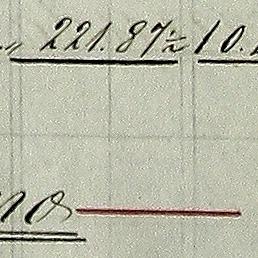 „ 221.87½ 10.
no